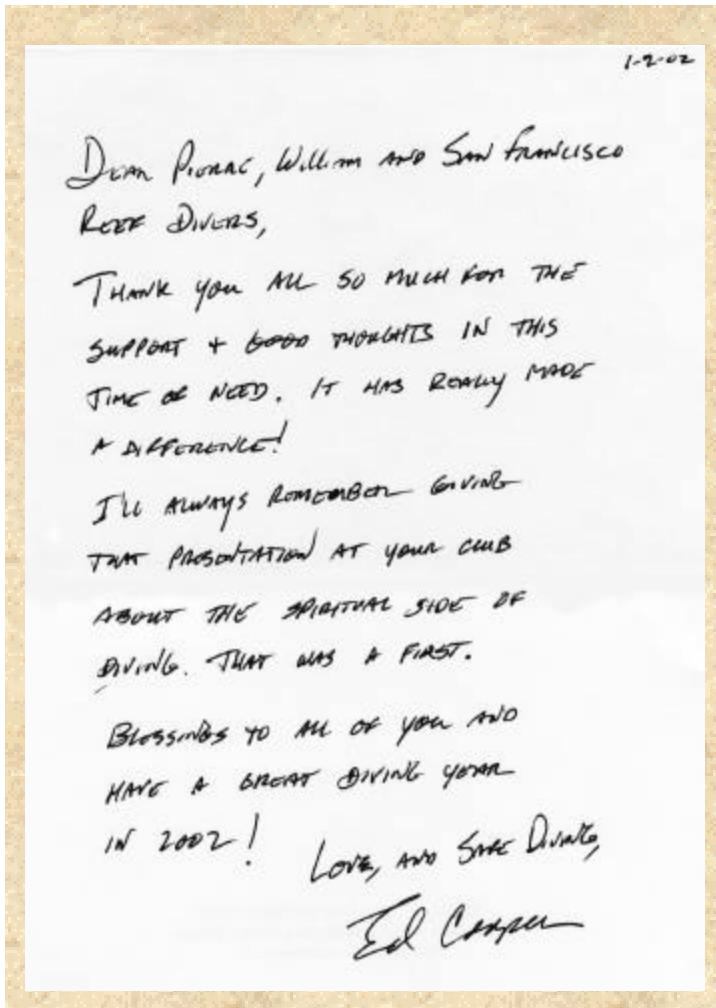 1-2-02
DEAR PIERRE, WILLIAM AND SAN FRANCISCO
REEF DIVERS,
THANK YOU ALL SO MUCH FOR THE
SUPPORT + GOOD THOUGHTS IN THIS
TIME OF NEED. IT HAS REALLY MADE
A DIFFERENCE!
I'LL ALWAYS REMEMBER GIVING
THAT PRESENTATION AT YOUR CLUB
ABOUT THE SPIRITUAL SIDE OF
DIVING. THAT WAS A FIRST.
BLESSINGS TO ALL OF YOU AND
HAVE A GREAT DIVING YEAR
IN 2002!
LOVE, AND SAFE DIVING,
Ed